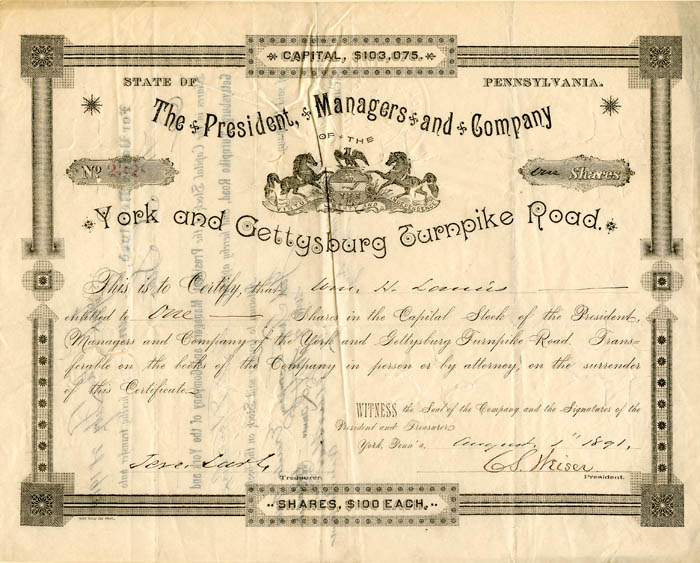 CAPITAL, $103,075.
STATE OF PENNSYLVANIA.
The President, Managers and Company
OF THE
No
one Shares
York and Gettysburg Turnpike Road.
This is to Certify, that Wm. H. Lanius
entitled to One Shares in the Capital Stock of the President,
Managers and Company of the York and Gettysburg Turnpike Road. Trans-
ferable on the books of the Company in person or by attorney, on the surrender
of this Certificate.
WITNESS the Seal of the Company and the Signatures of the
President and Treasurer.
York, Penn'a, August 1st 1891.
C.S. Weiser
Treasurer.
President.
SHARES, $100 EACH.